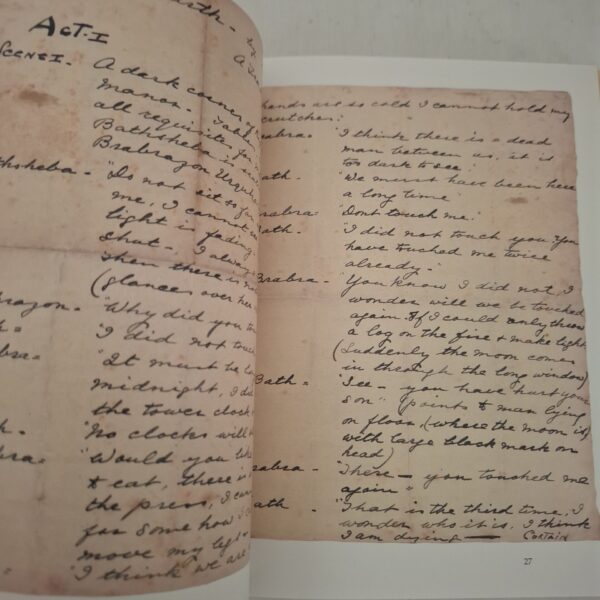 arth - by
ACT. I
A
SCENE I -
A dark corner
Manor -
all requisites for
Bathsheba is
Brabragon
thsheba - "Do not sit so far
me, I cannot
light is fading
shut -, I always
then there is
(glances over her
bragon - "Why did you
h = "I did not touch
bra = "It must be
midnight, I
the tower clock
h. "No clocks will
bra = "Would you like
to eat, there is
the press, I can
for some how I
move my legs -
= "I think we are
hands are so cold I cannot hold my
crutches:
abra - "I think there is a dead
man between us, it is
too dark to see."
ath - "We must have been here
a long time
abra - "Dont touch me."
ath - "I did not touch you You
have touched me twice
already -"
Brabra - "You know I did not, I
wonder will we be touched
again. If I could only throw
a log on the fire & make light
(Suddenly the moon comes
in through the long window)
Bath - "See - you have hurt your
son" (points to man lying
on floor (where the moon is)
with large black mark on
head)
abra - "There - you touched me
again"
ath - "That is the third time, I
wonder who it is. I think
I am dying — CURTAIN
27